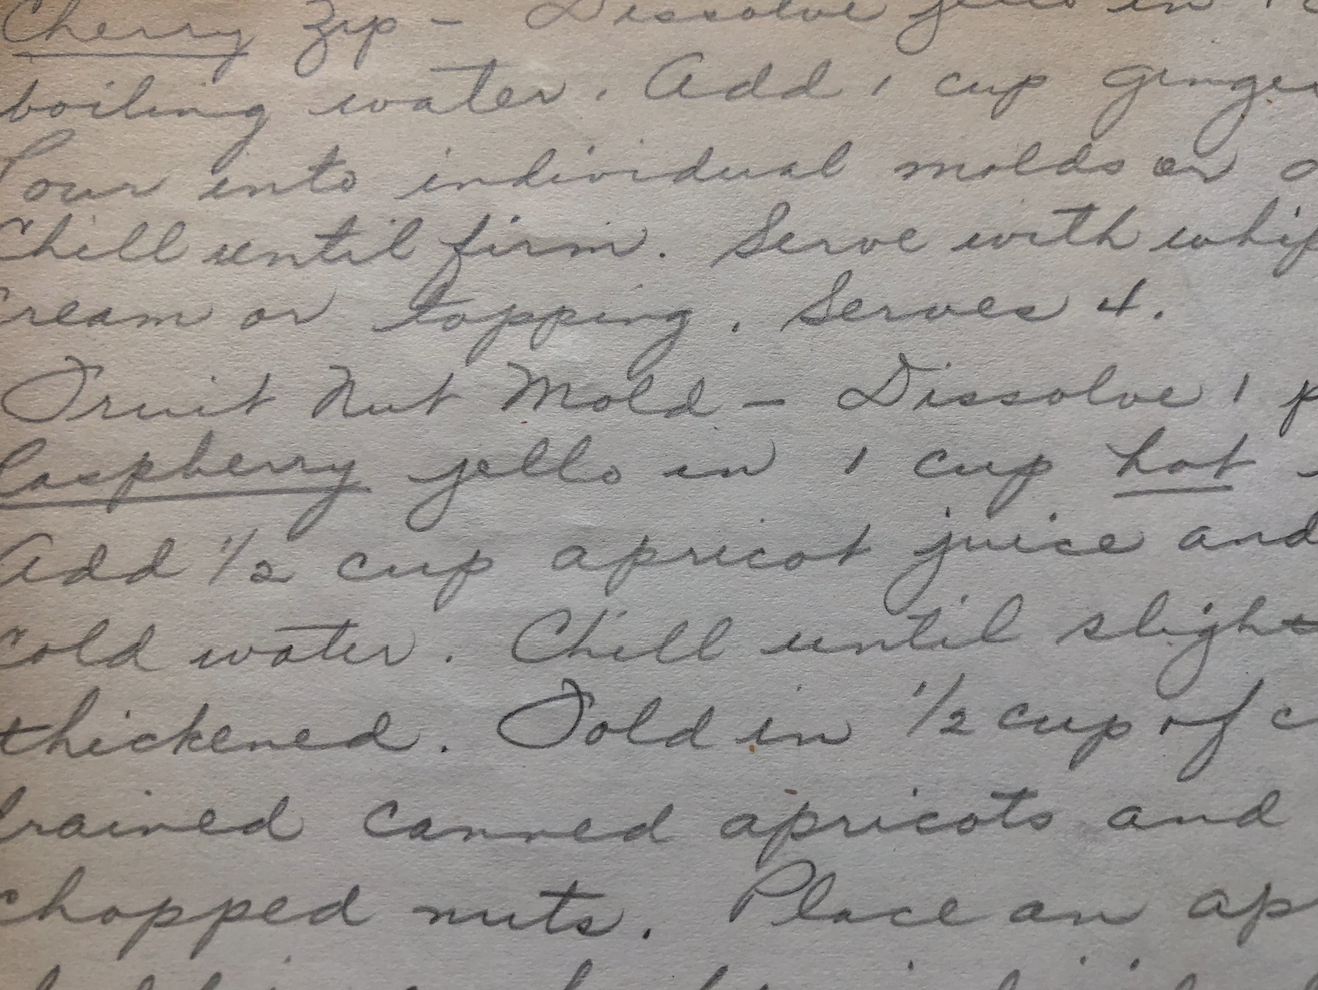 Cherry Zip - Dissolve jello in 1
boiling water. Add 1 cup ginge
Pour into individual molds or
Chill until firm. Serve with whip
cream or topping. Serves 4.
Fruit Nut Mold - Dissolve 1 p
Raspberry jello in 1 cup hot
Add 1/2 cup apricot juice and
cold water. Chill until slight
thickened. Fold in 1/2 cup of c
drained canned apricots and
chopped nuts. Place an ap